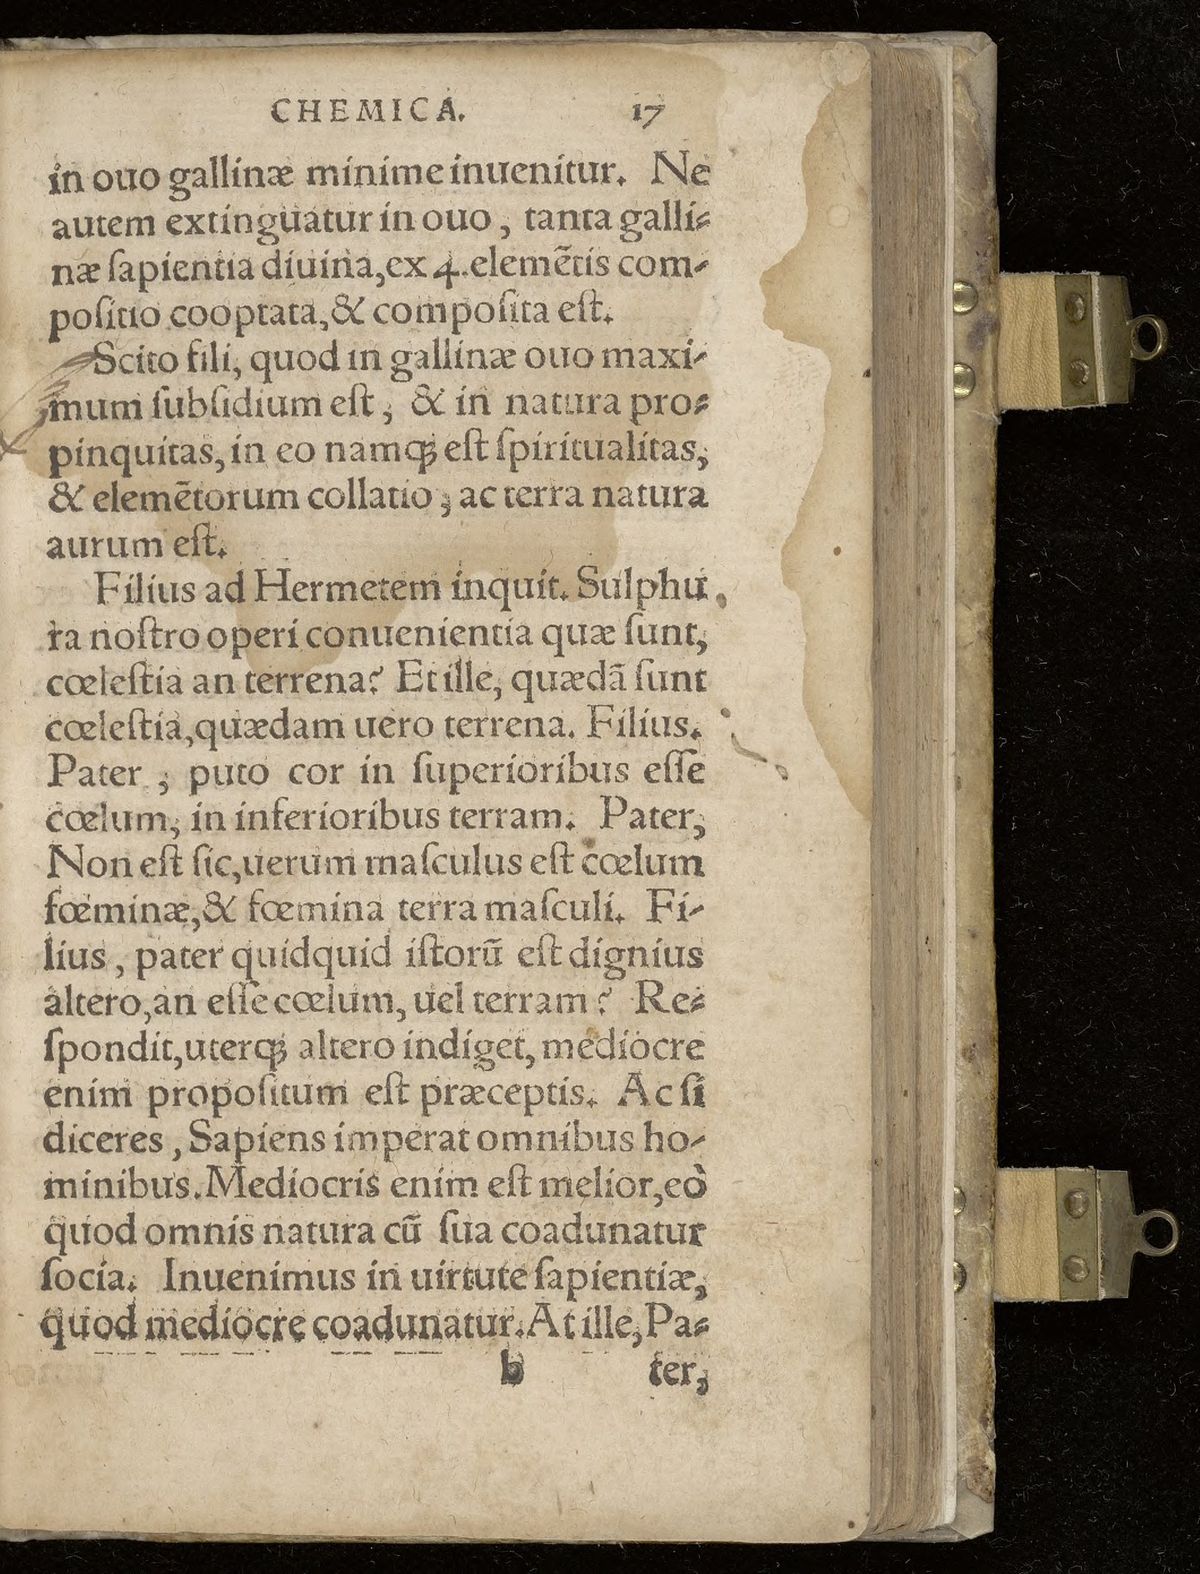 CHEMICA. 17
in ouo gallinæ minime inuenitur. Ne
autem extinguatur in ouo, tanta galli⸗
næ ſapientia diuina, ex 4. elemẽtis com⸗
poſitio cooptata, & compoſita eſt.
Scito fili, quod in gallinæ ouo maxi⸗
mum ſubſidium eſt, & in natura pro⸗
pinquitas, in eo namq́ꝫ eſt ſpiritualitas,
& elemẽtorum collatio, ac terra natura
aurum eſt.
Filius ad Hermetem inquit. Sulphu
ra noſtro operi conuenientia quæ ſunt,
cœleſtia an terrena? Et ille, quædã ſunt
cœleſtia, quædam uero terrena. Filius.
Pater, puto cor in ſuperioribus eſſe
cœlum, in inferioribus terram. Pater,
Non eſt ſic, uerum maſculus eſt cœlum
fœminæ, & fœmina terra maſculi. Fi⸗
lius, pater quidquid iſtorũ eſt dignius
altero, an eſſe cœlum, uel terram? Re⸗
ſpondit, uterq́ꝫ altero indiget, mediocre
enim propoſitum eſt præceptis. Ac ſi
diceres, Sapiens imperat omnibus ho⸗
minibus. Mediocris enim eſt melior, eò
quod omnis natura cũ ſua coadunatur
ſocia. Inuenimus in uirtute ſapientiæ,
quod mediocre coadunatur. At ille, Pa⸗
b ter,